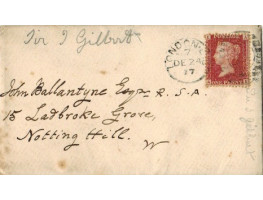 Sir J Gilbert
LONDON
7
DE 24
77
John Ballantyne Esqr. R.S.A.
15 Ladbroke Grove,
Notting Hill.
W